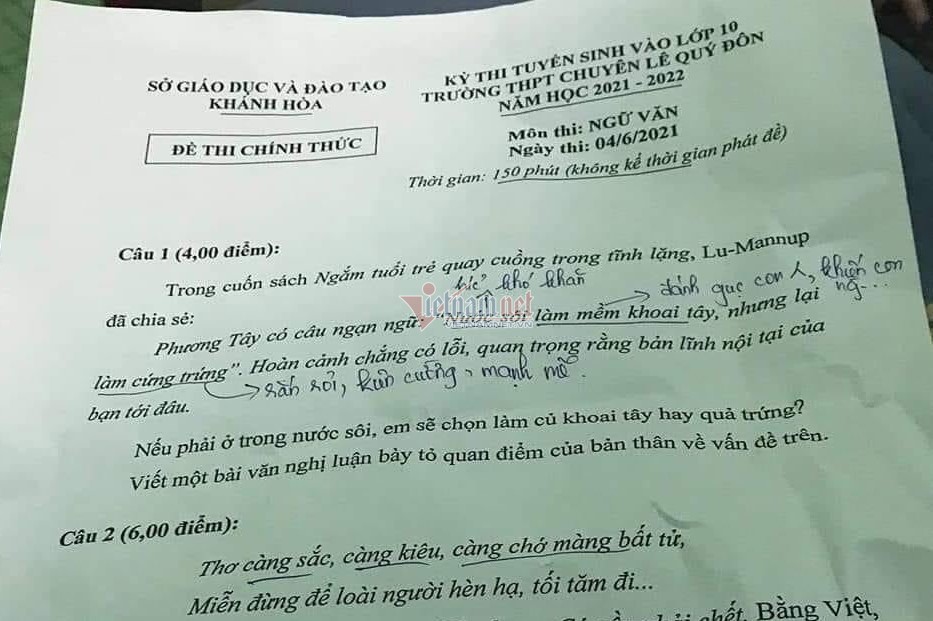 SỞ GIÁO DỤC VÀ ĐÀO TẠO
KHÁNH HÒA
ĐỀ THI CHÍNH THỨC
KỲ THI TUYỂN SINH VÀO LỚP 10
TRƯỜNG THPT CHUYÊN LÊ QUÝ ĐÔN
NĂM HỌC 2021 - 2022
Môn thi: NGỮ VĂN
Ngày thi: 04/6/2021
Thời gian: 150 phút (không kể thời gian phát đề)
Câu 1 (4,00 điểm):
Trong cuốn sách Ngắm tuổi trẻ quay cuồng trong tĩnh lặng, Lu-Mannup
khó khăn
đánh gục con khiến con
đã chia sẻ:
vietnamnet
VIETNAMNET.VN
Phương Tây có câu ngạn ngữ: “Nước sôi làm mềm khoai tây, nhưng lại
làm cứng trứng”. Hoàn cảnh chẳng có lỗi, quan trọng rằng bản lĩnh nội tại của
rắn rỏi, kiên cường, mạnh mẽ.
bạn tới đâu.
Nếu phải ở trong nước sôi, em sẽ chọn làm củ khoai tây hay quả trứng?
Viết một bài văn nghị luận bày tỏ quan điểm của bản thân về vấn đề trên.
Câu 2 (6,00 điểm):
Thơ càng sắc, càng kiêu, càng chớ màng bất tử,
Miễn đừng để loài người hèn hạ, tối tăm đi...
chết, Bằng Việt,